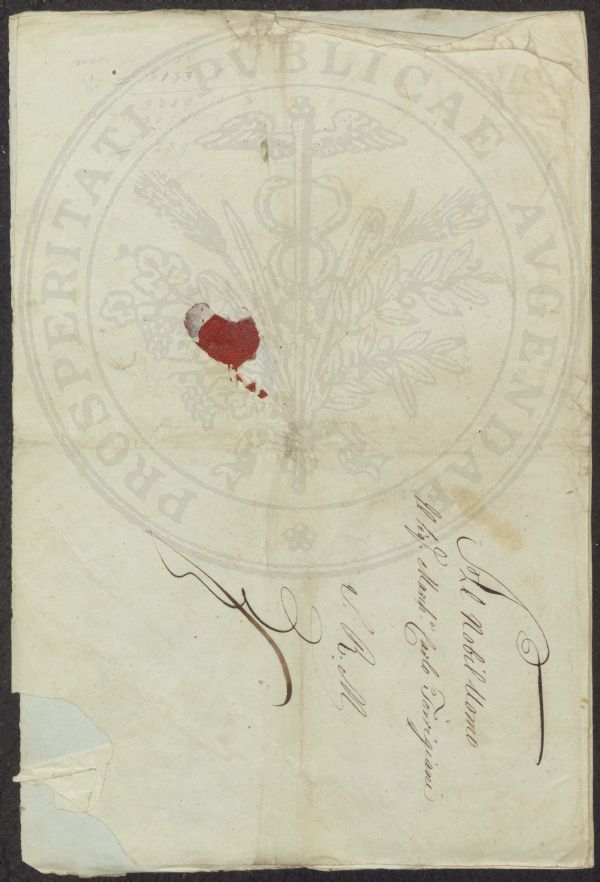 PROSPERITATI PVBLICAE AVGENDAE
Al Nobil Uomo
Il Sig.r March.e Carlo Torrigiani
S. R. M.